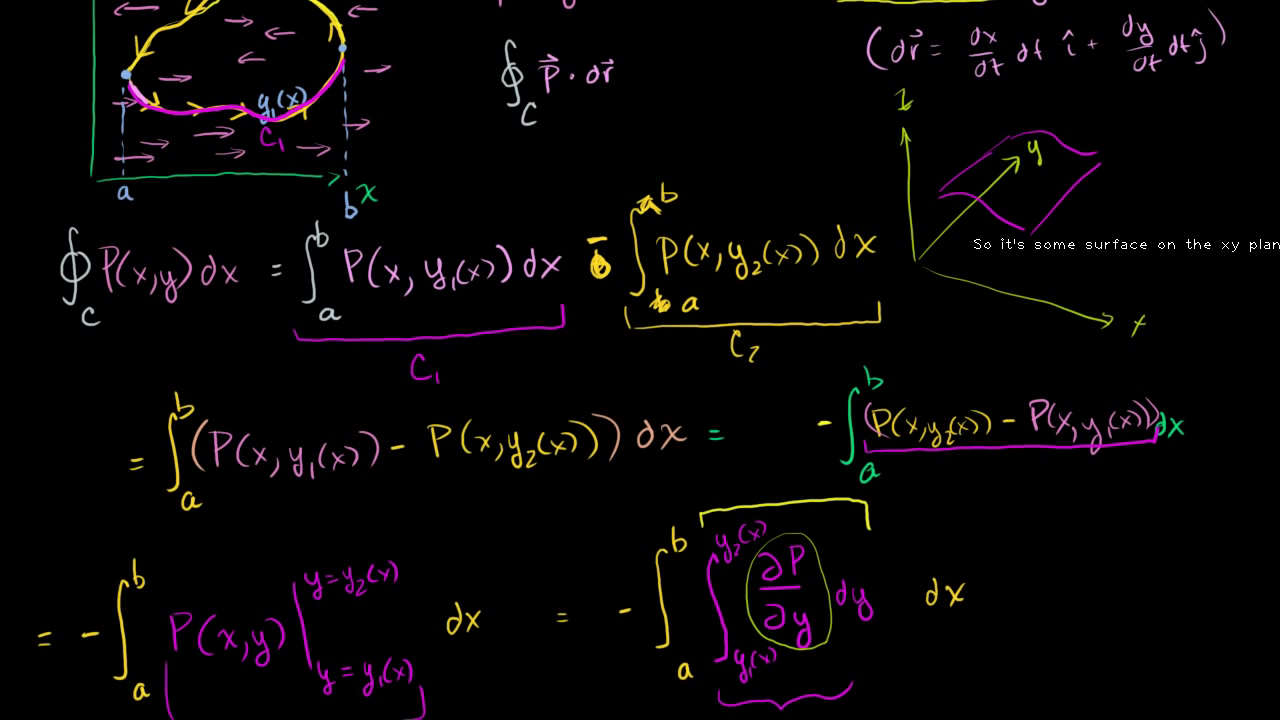 y₁(x)
C₁
a
b
x
∮_C P⃗ · dr⃗
(dr⃗ = dx/dt dt î + dy/dt dt ĵ)
z
y
So it's some surface on the xy plan
x
∮_C P(x,y) dx = ∫_a^b P(x, y₁(x)) dx - ∫_a^b P(x, y₂(x)) dx
C₁
C₂
= ∫_a^b (P(x, y₁(x)) - P(x, y₂(x))) dx = - ∫_a^b (P(x, y₂(x)) - P(x, y₁(x))) dx
= - ∫_a^b P(x,y) |_{y = y₁(x)}^{y = y₂(x)} dx = - ∫_a^b ∫_{y₁(x)}^{y₂(x)} ∂P/∂y dy dx